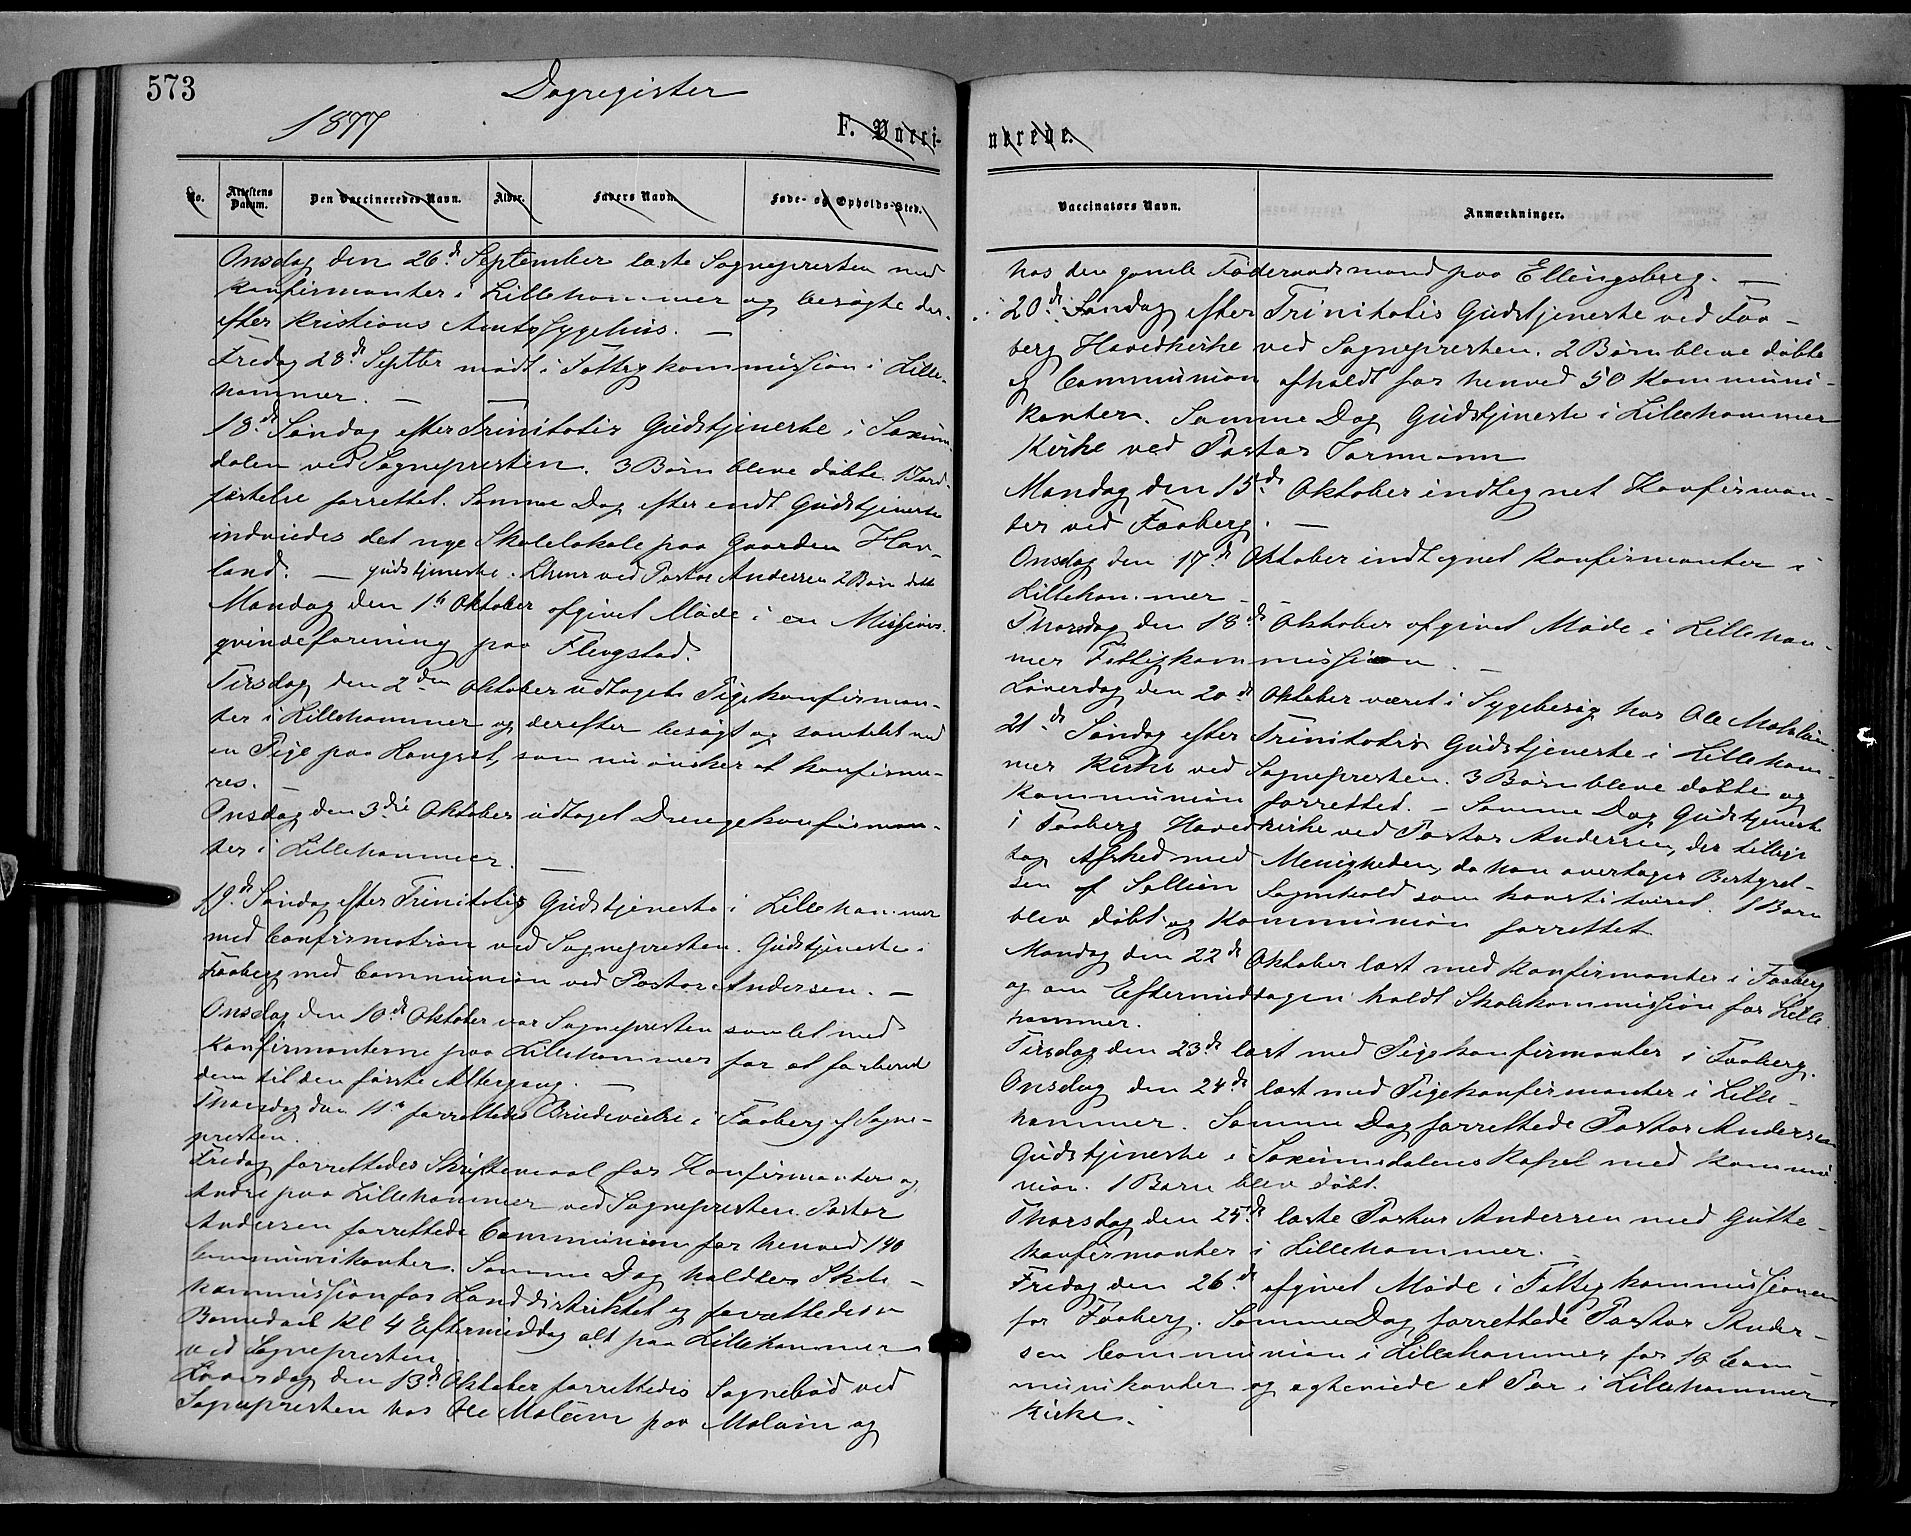 573
Dagregister
1877
F. Vacci-
nerede.
No.
Attestens Datum.
Den Vaccineredes Navn.
Alder.
Faders Navn.
Føde- og Opholds-Sted.
Vaccinators Navn.
Anmærkninger.
Onsdag den 26d September læste Sognepresten med
Konfirmanter i Lillehammer og besøgte der-
efter Kristians Amts Sygehus. —
Fredag 28d Septbr mødt i Fattigkommission i Lille-
hammer. — —
18d Søndag efter Trinitatis Gudstjeneste i Saxum-
dalen ved Sognepresten. 3 Børn bleve døbte. 1 Jord-
fæstelse forrettet. Samme Dag efter endt Gudstjeneste
indviedes det nye Skolelokale paa Gaarden Hav-
land. — Gudstjeneste i ved Pastor Andersen 2 Børn døbt
Mandag den 1st Oktober afgivet Møde i en Missions-
qvindeforening paa Flevgstad.
Tirsdag den 2den Oktober udtaget Pigekonfirman-
ter i Lillehammer og derefter besøgt og samtalt med
en Pige paa , som nu ønsker at konfirme-
res. —
Onsdag den 3die Oktober udtaget Drengekonfirman-
ter i Lillehammer. —
19d Søndag efter Trinitatis Gudstjeneste i Lillehammer
med Confirmation ved Sognepresten. Gudstjeneste i
Faaberg med Communion ved Pastor Andersen. —
Onsdag den 10d Oktober var Sognepresten samlet med
Konfirmanterne paa Lillehammer for at forberede
dem til den første Altergang. —
Thorsdag den 11te forrettedes Brudevielse i Faaberg af Sogne-
presten.
Fredag forrettedes Skriftemaal for Konfirmanter og
Andre paa Lillehammer ved Sognepresten. Pastor
Andersen forrettede Communion for henved 140
Communikanter. Samme Dag holdtes Skole-
kommission for Landdistriktet og forrettedes en
Barnedaab Kl 4 Eftermiddag alt paa Lillehammer
ved Sognepresten.
Løverdag den 13d Oktober forrettedes Sognebud ved
Sognepresten hos Ole Moløin paa Moløin og
hos den gamle Føderaadsmand paa Ellingsberg. —
20d Søndag efter Trinitatis Gudstjeneste ved Faa-
berg Hovedkirke ved Sognepresten. 2 Børn bleve døbte
og Communion afholdt for henved 50 Kommuni-
kanter. Samme Dag Gudstjeneste i Lillehammer
Kirke ved Pastor Jormann
Mandag den 15d Oktober indtegnet Konfirman-
ter ved Faaberg. —
Onsdag den 17d Oktober indtegnet Konfirmanter i
Lillehammer —
Thorsdag den 18d Oktober afgivet Møde i Lilleham-
mer Fattigkommission. —
Løverdag den 20d Oktober været i Sygebesøg hos Ole
21d Søndag efter Trinitatis Gudstjeneste i Lilleham-
mer Kirke ved Sognepresten. 3 Børn bleve døbte og
Kommunion forrettet. — Samme Dag Gudstjeneste
i Faaberg Hovedkirke ved Pastor Andersen, der tillige
tog Afsked med Menigheden, da han overtager Bestyrel-
sen af Sollien Sognekald som konstitueret. 1 Barn
blev døbt og Kommunion forrettet
Mandag den 22d Oktober læst med Konfirmanter i Faaberg
og om Eftermiddagen holdt Skolekommission for Lille-
hammer.
Tirsdag den 23d læst med Pigekonfirmanter i Faaberg.
Onsdag den 24d læst med Pigekonfirmanter i Lille-
hammer. Samme Dag forrettede Pastor Andersen
Gudstjeneste i Saxumdalens Kapel med Kommu-
nion. 1 Barn blev døbt.
Thorsdag den 25d læste Pastor Andersen med Gutte-
konfirmanter i Lillehammer. —
Fredag den 26d afgivet Møde i Fattigkommissionen
for Faaberg. Samme Dag forrettede Pastor Ander-
sen Communion i Lillehammer for 10 Com
munikanter og egteviede et Par i Lillehammer
Kirke.